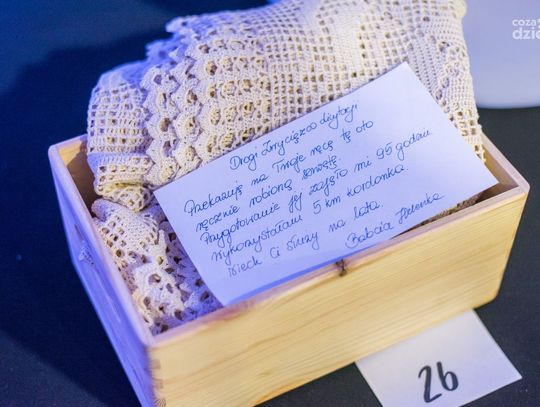 coza
dzie
Drogi Zwycięzco licytacji
Przekazuję na Twoje ręce tę oto
ręcznie robioną serwetę.
Przygotowanie jej zajęło mi 95 godzin
Wykorzystałam 5 km kordonka
Niech Ci służy na lata.
Babcia Helenka
26